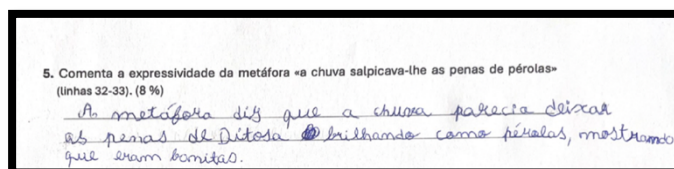 5. Comenta a expressividade da metáfora «a chuva salpicava-lhe as penas de pérolas»
(linhas 32-33). (8 %)
A metáfora diz que a chuva parecia deixar
as penas de Ditosa brilhando como pérolas, mostrando
que eram bonitas.